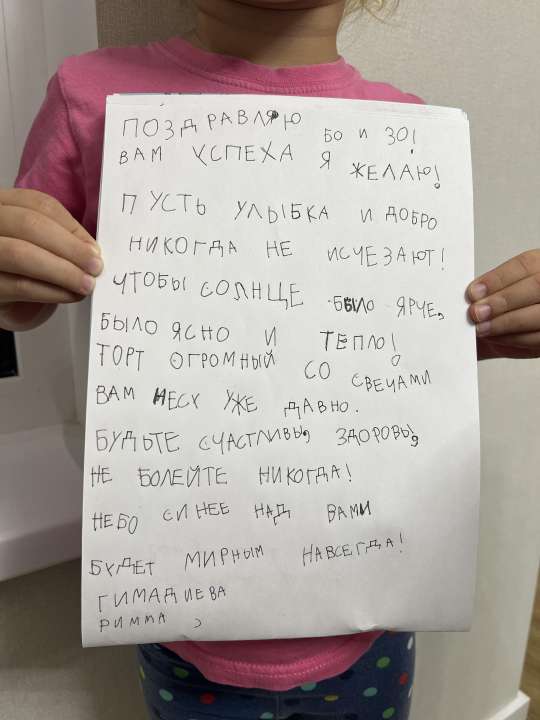 ПОЗДРАВЛЯЮ БО И ЗО!
ВАМ УСПЕХА Я ЖЕЛАЮ!
ПУСТЬ УЛЫБКА И ДОБРО
НИКОГДА НЕ ИСЧЕЗАЮТ!
ЧТОБЫ СОЛНЦЕ БЫЛО ЯРЧЕ,
БЫЛО ЯСНО И ТЕПЛО!
ТОРТ ОГРОМНЫЙ СО СВЕЧАМИ
ВАМ НЕСУ УЖЕ ДАВНО.
БУДЬТЕ СЧАСТЛИВЫ, ЗДОРОВЫ,
НЕ БОЛЕЙТЕ НИКОГДА!
НЕБО СИНЕЕ НАД ВАМИ
БУДЕТ МИРНЫМ НАВСЕГДА!
ГИМАДИЕВА
РИММА